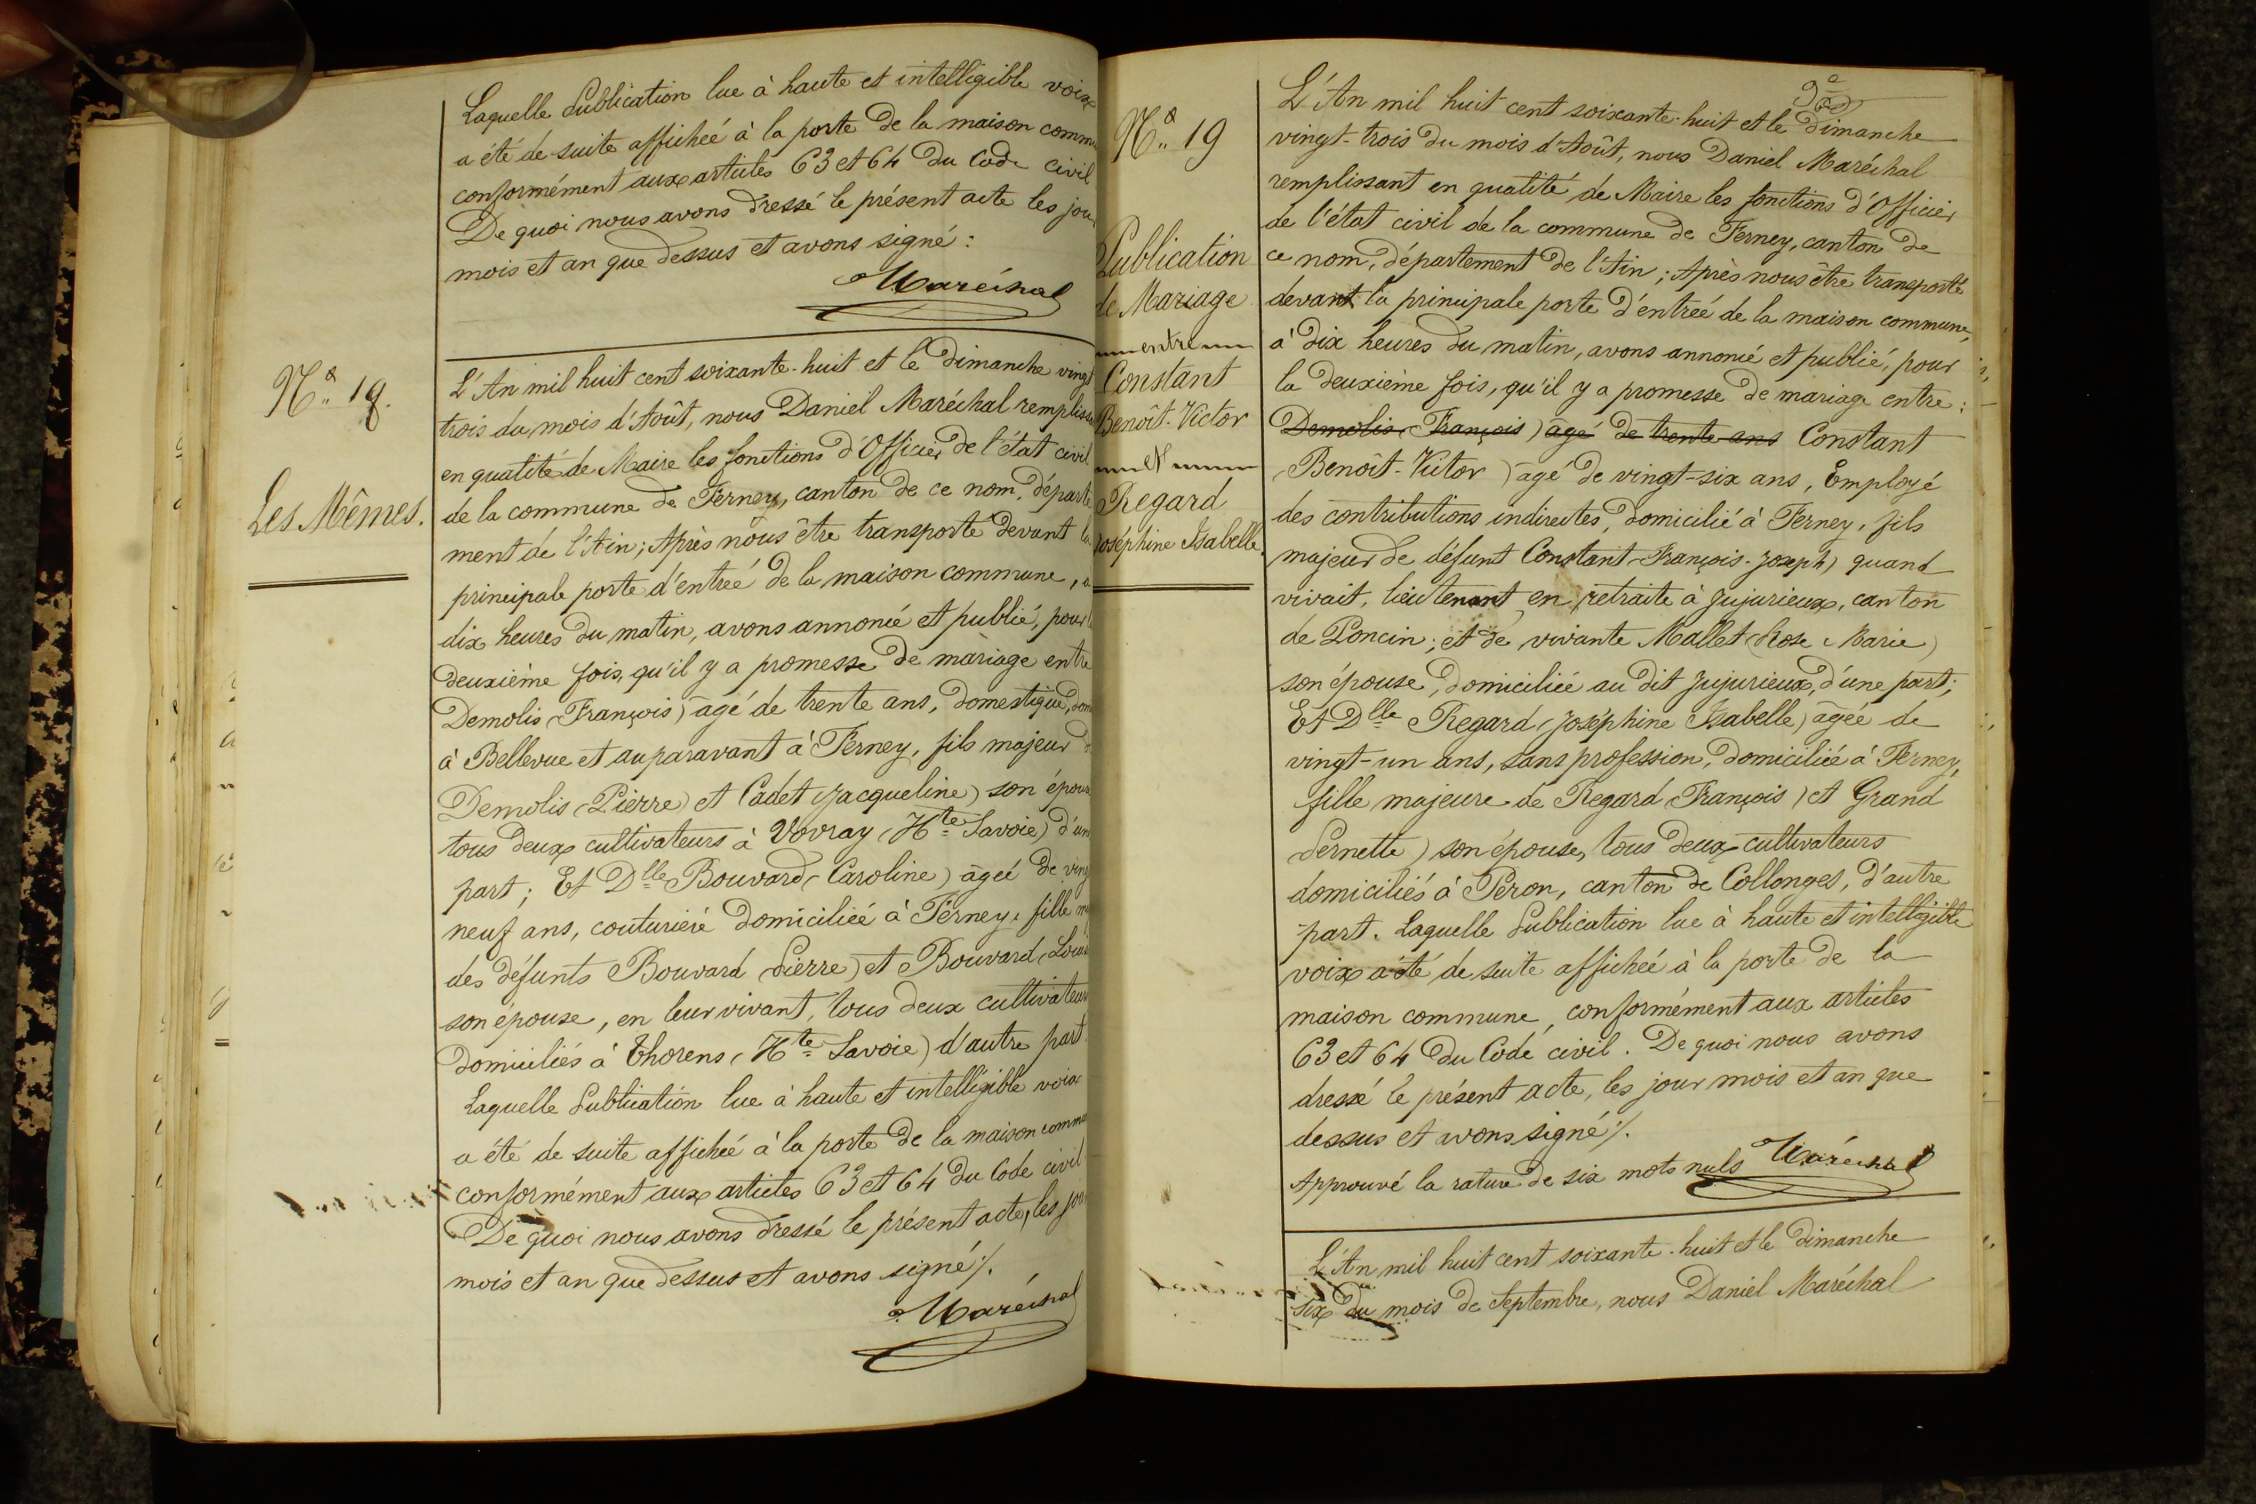 Laquelle Publication lue à haute et intelligible voix
a été de suite affichée à la porte de la maison commu
conformément aux articles 63 et 64 du Code civil
De quoi nous avons dressé le présent acte les jou
mois et an que dessus et avons signé :
Maréchal
Nº 18.
Les Mêmes.
L'An mil huit cent soixante-huit et le dimanche vingt
trois du mois d'Août, nous Daniel Maréchal remplissa
en qualité de Maire les fonctions d'Officier de l'état civil
de la commune de Ferney, canton de ce nom, départe
ment de l'Ain ; Après nous être transporté devant la
principale porte d'entrée de la maison commune, à
dix heures du matin, avons annoncé et publié, pour la
deuxième fois, qu'il y a promesse de mariage entre
Demolis (François) âgé de trente ans, domestique, dom
à Bellevue et auparavant à Ferney, fils majeur de
Demolis (Pierre) et Cadet (Jacqueline) son épouse
tous deux cultivateurs à Vovray (Hte Savoie) d'une
part ; Et Dlle Bouvard (Caroline) âgée de ving
neuf ans, couturière domiciliée à Ferney, fille maj
des défunts Bouvard (Pierre) et Bouvard (Louis
son épouse, en leur vivant, tous deux cultivateurs
domiciliés à Thorens (Hte Savoie) d'autre part.
Laquelle Publication lue à haute et intelligible voix
a été de suite affichée à la porte de la maison commu
conformément aux articles 63 et 64 du Code civil
De quoi nous avons dressé le présent acte, les jour
mois et an que dessus et avons signé ./.
Maréchal
Nº 19
Publication
de Mariage
entre
Constant
Benoît-Victor
et
Regard
Joséphine Isabelle.
L'An mil huit cent soixante-huit et le dimanche
vingt-trois du mois d'Août, nous Daniel Maréchal
remplissant en qualité de Maire les fonctions d'Officier
de l'état civil de la commune de Ferney, canton de
ce nom, département de l'Ain ; Après nous être transporté
devant la principale porte d'entrée de la maison commune,
à dix heures du matin, avons annoncé et publié, pour
la deuxième fois, qu'il y a promesse de mariage entre :
Demolis (François) âgé de trente ans Constant
(Benoît-Victor) âgé de vingt-six ans, Employé
des contributions indirectes, domicilié à Ferney, fils
majeur de défunt Constant (François-Joseph) quand
vivait, lieutenant en retraite à Jujurieux, canton
de Poncin ; et de vivante Mallet (Rose Marie)
son épouse, domiciliée au dit Jujurieux, d'une part ;
Et Dlle Regard (Joséphine Isabelle) âgée de
vingt-un ans, sans profession, domiciliée à Ferney,
fille majeure de Regard (François) et Grand
(Pernette) son épouse, tous deux cultivateurs
domiciliés à Péron, canton de Collonges, d'autre
part. Laquelle Publication lue à haute et intelligible
voix a été de suite affichée à la porte de la
maison commune, conformément aux articles
63 et 64 du Code civil. De quoi nous avons
dressé le présent acte, les jour mois et an que
dessus et avons signé ./.
Approuvé la rature de six mots nuls Maréchal
L'An mil huit cent soixante-huit et le dimanche
six du mois de Septembre, nous Daniel Maréchal